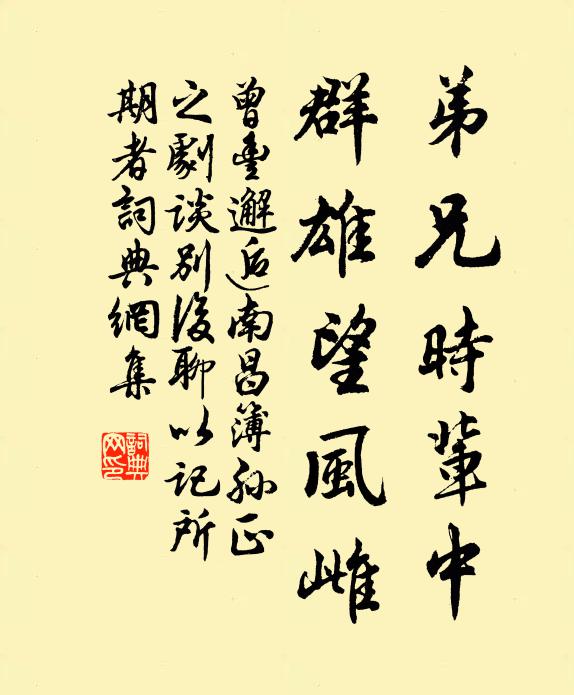 弟兄時輩中
群雄望風雌
曾豐邂逅南昌簿孙正
之劇談别後聊以記所
期者詞典網集
詞典网印